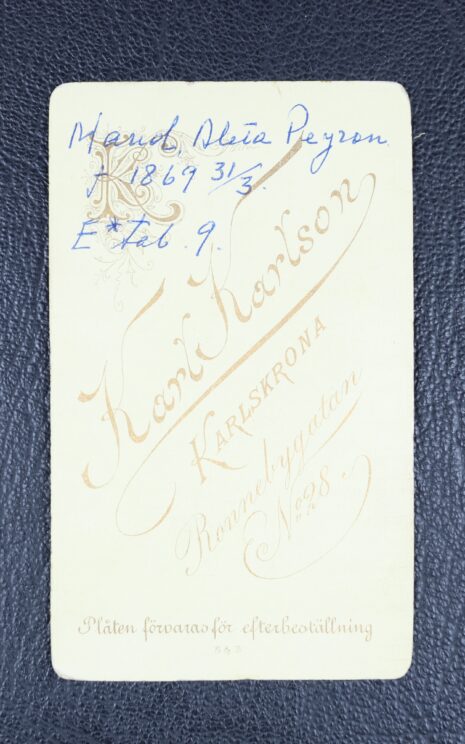 Maud, Aléta Peyron
f 1869 31/3.
E* tab. 9.
KK
Karl Karlson
KARLSKRONA
Ronnebygatan
No 28.
Plåten förvaras för efterbeställning